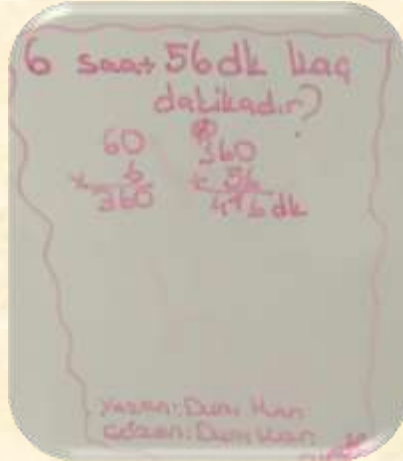 6 saat 56dk kaç
dakikadır?
60
x 6
360
360
+ 56
416 dk
Yazan: Duru
Çözen: Duru